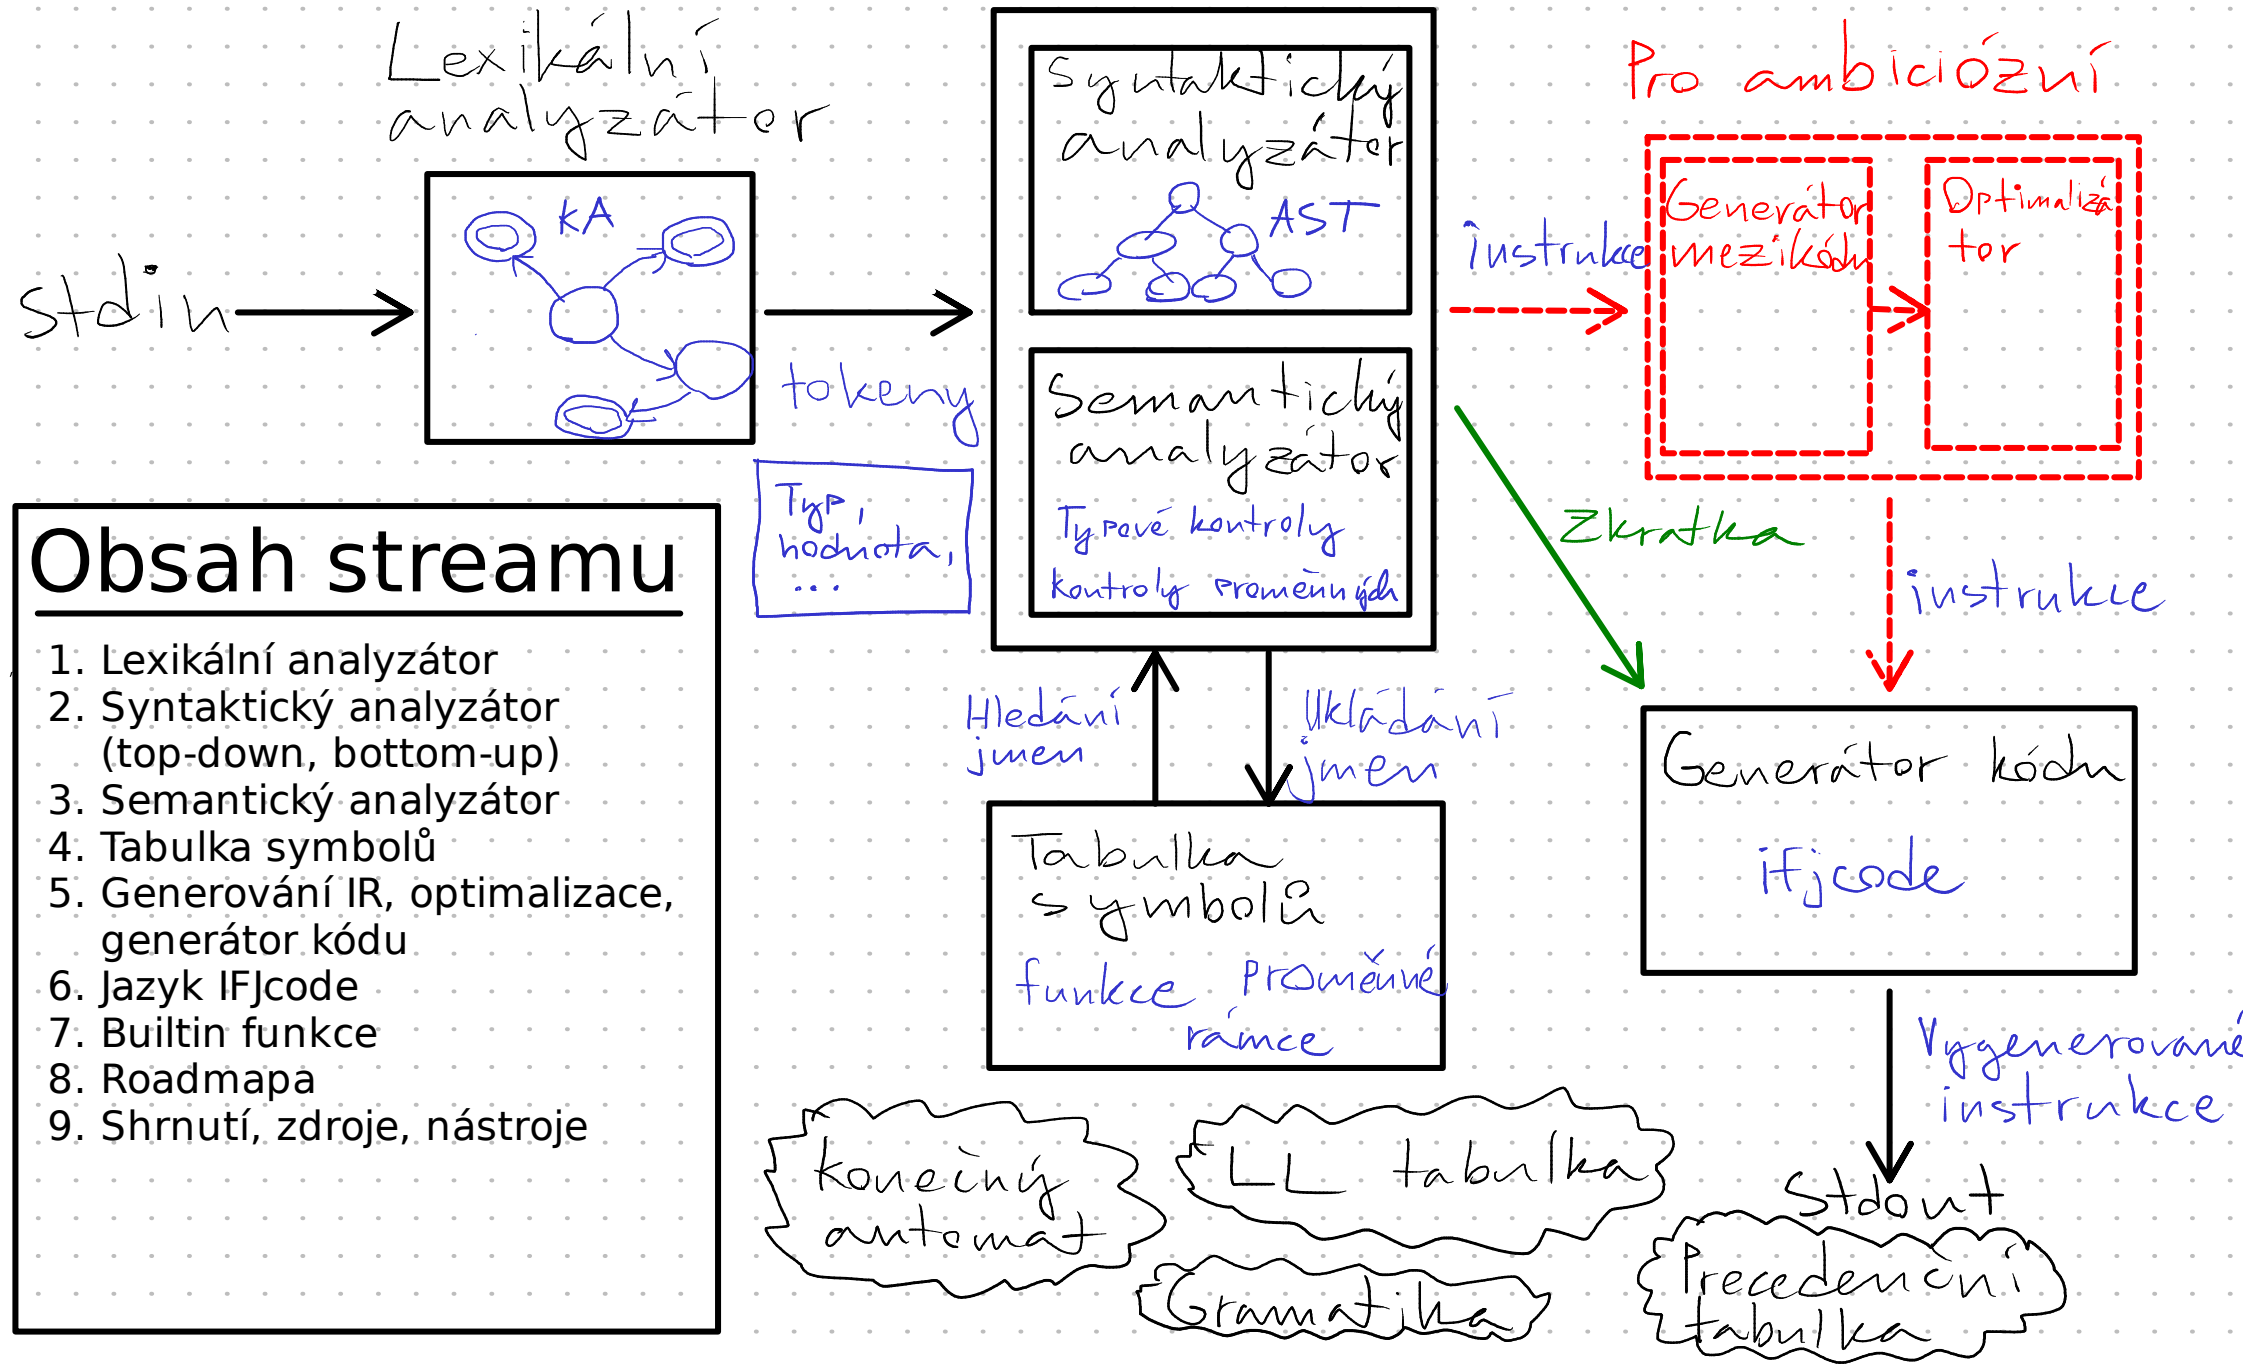 Lexikální
analyzátor
stdin
KA
tokeny
Typ,
hodnota,
...
Syntaktický
analyzátor
AST
Semantický
analyzátor
Typové kontroly
kontroly proměnných
instrukce
Pro ambiciózní
Generátor
mezikódu
Optimalizá
tor
Zkratka
instrukce
Hledání
jmen
Ukládání
jmen
Tabulka
symbolů
funkce proměnné
rámce
Generátor kódu
ifjcode
Vygenerované
instrukce
Stdout
Obsah streamu
1. Lexikální analyzátor
2. Syntaktický analyzátor
(top-down, bottom-up)
3. Semantický analyzátor
4. Tabulka symbolů
5. Generování IR, optimalizace,
generátor kódu
6. Jazyk IFJcode
7. Builtin funkce
8. Roadmapa
9. Shrnutí, zdroje, nástroje
Konečný
automat
LL tabulka
Gramatika
Precedenční
tabulka